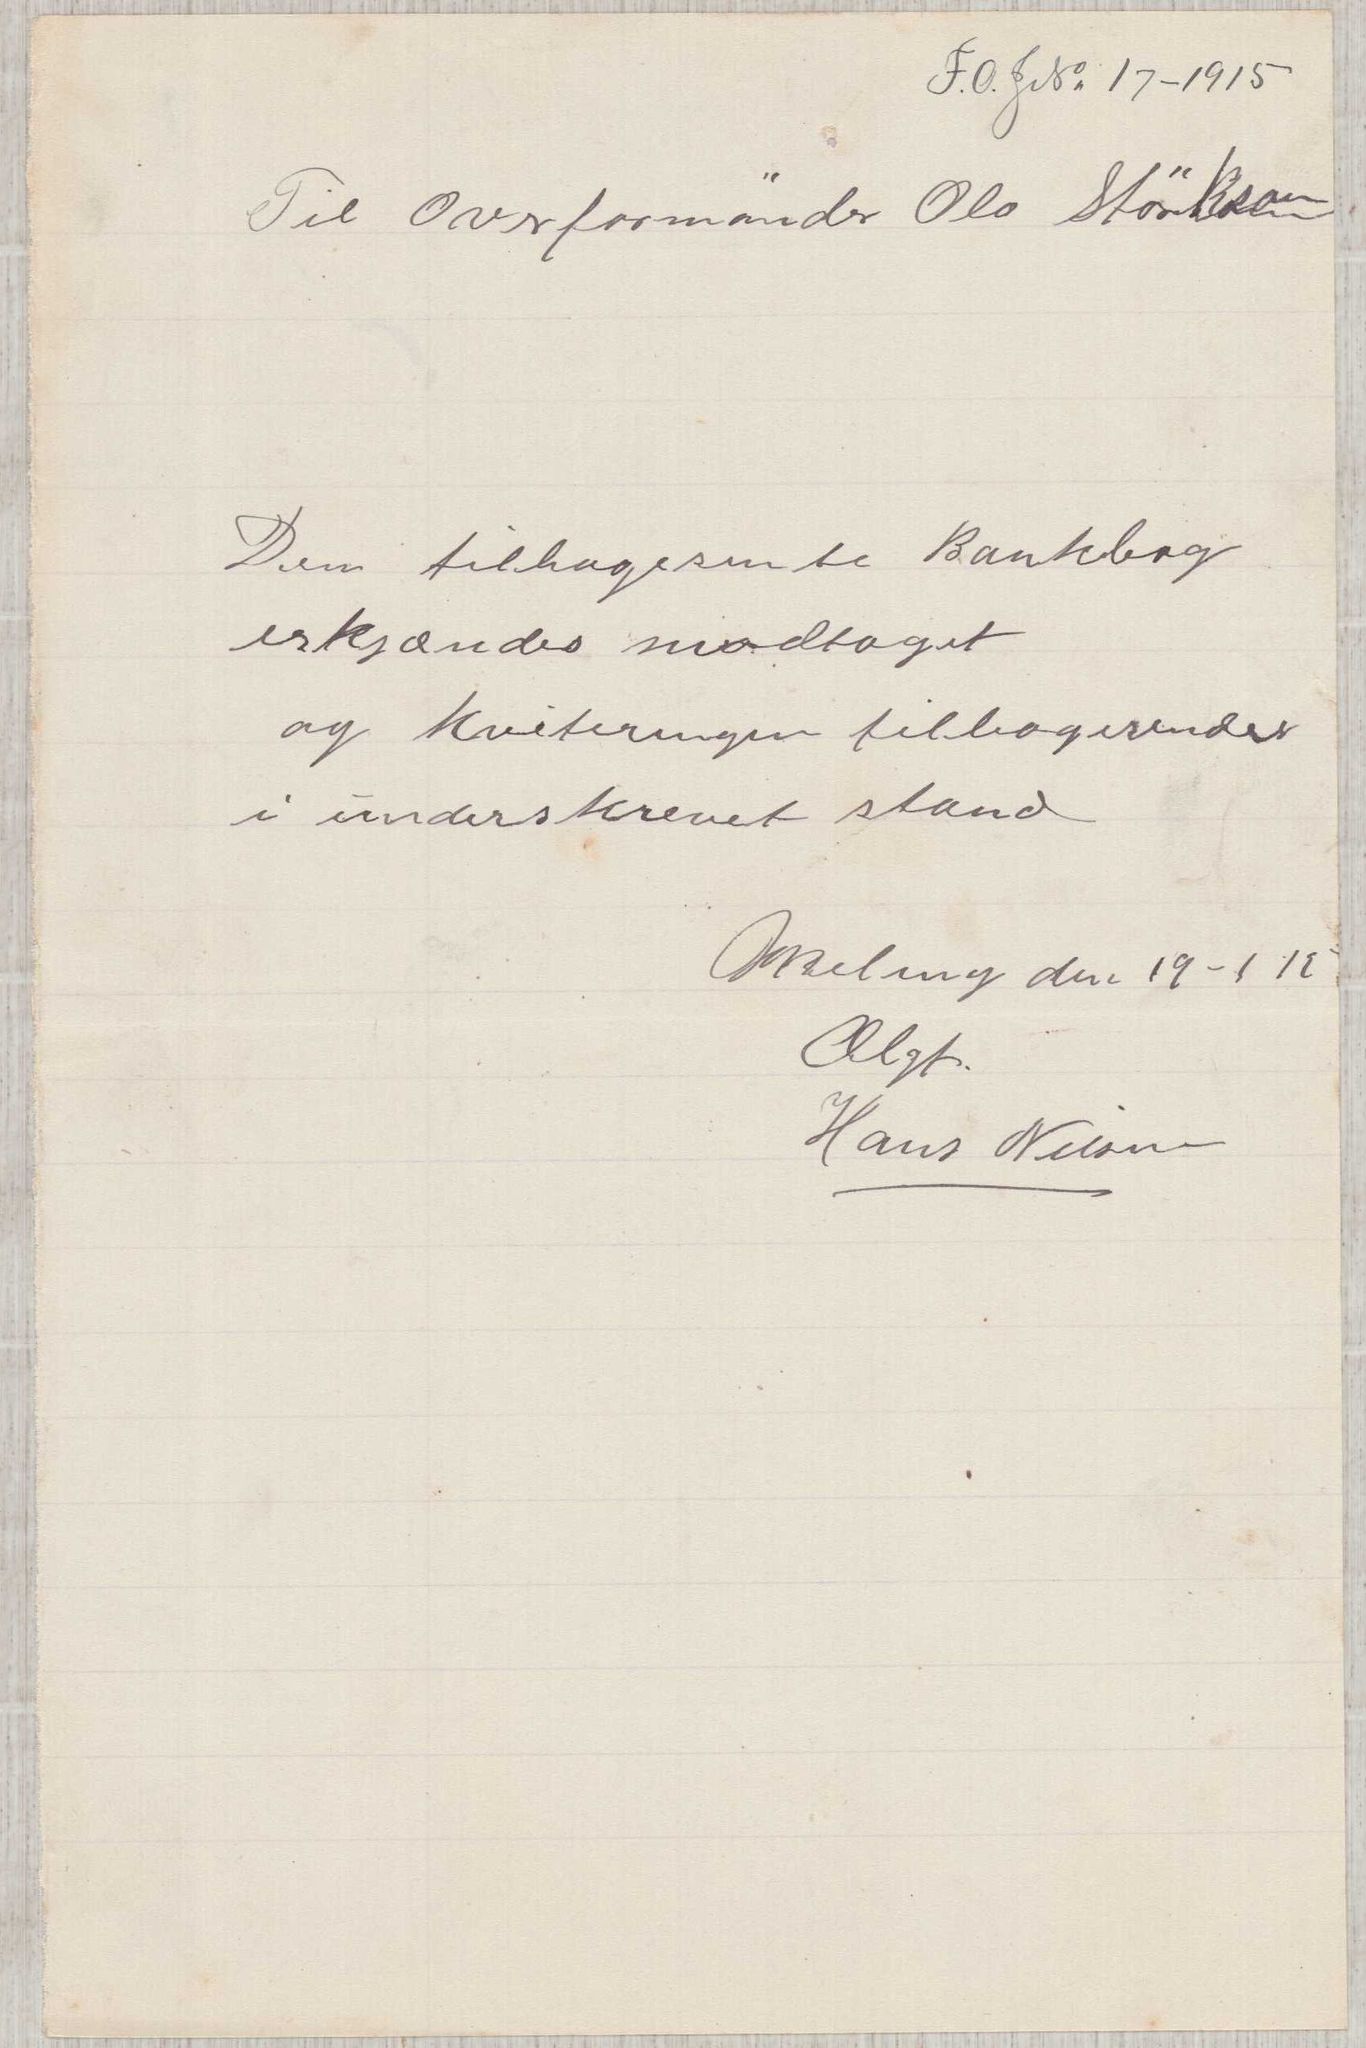 F.O. J.No. 17-1915
Til Overformander Ole
Den tilbagesente Bankbog
erkjændes modtaget
og kviteringen tilbagesendes
i ünderskrevet stand
den 19-1 15
Ælgt.
Hans Nilsen